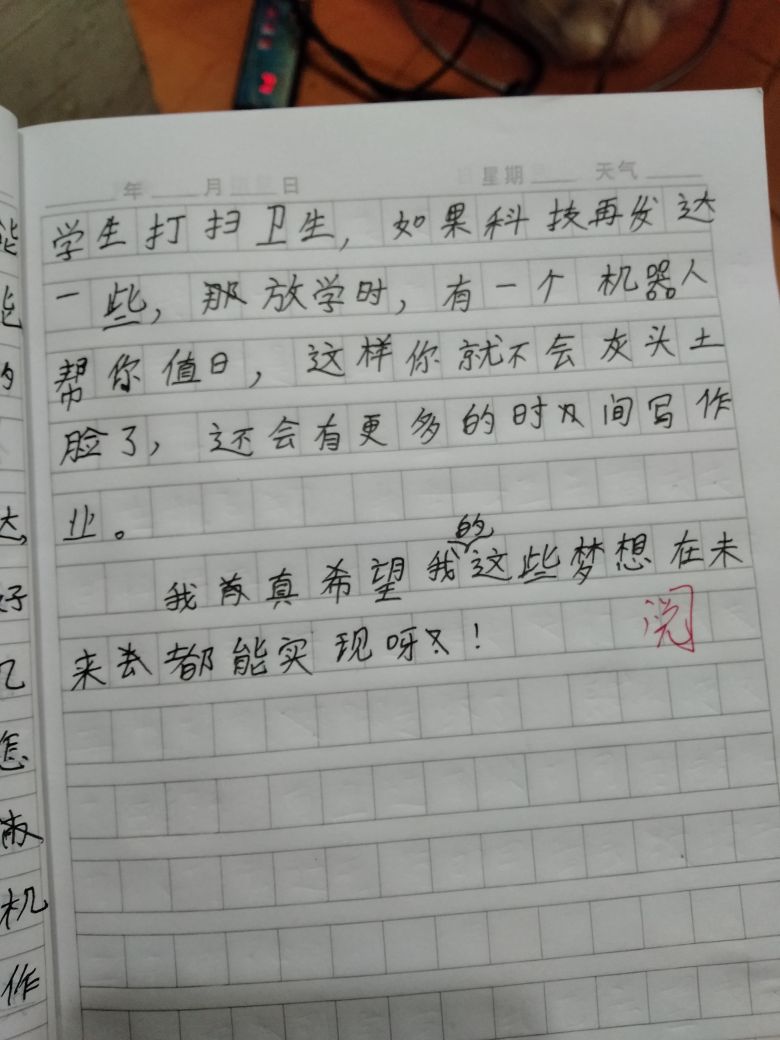 年 月 日 星期 天气
学生打扫卫生，如果科技再发达
一些，那放学时，有一个机器人
帮你值日，这样你就不会灰头土
脸了，还会有更多的时间写作
业。
我真希望我的这些梦想在未
来都能实现呀！
阅
能
的
达，
好
几
怎
机
作